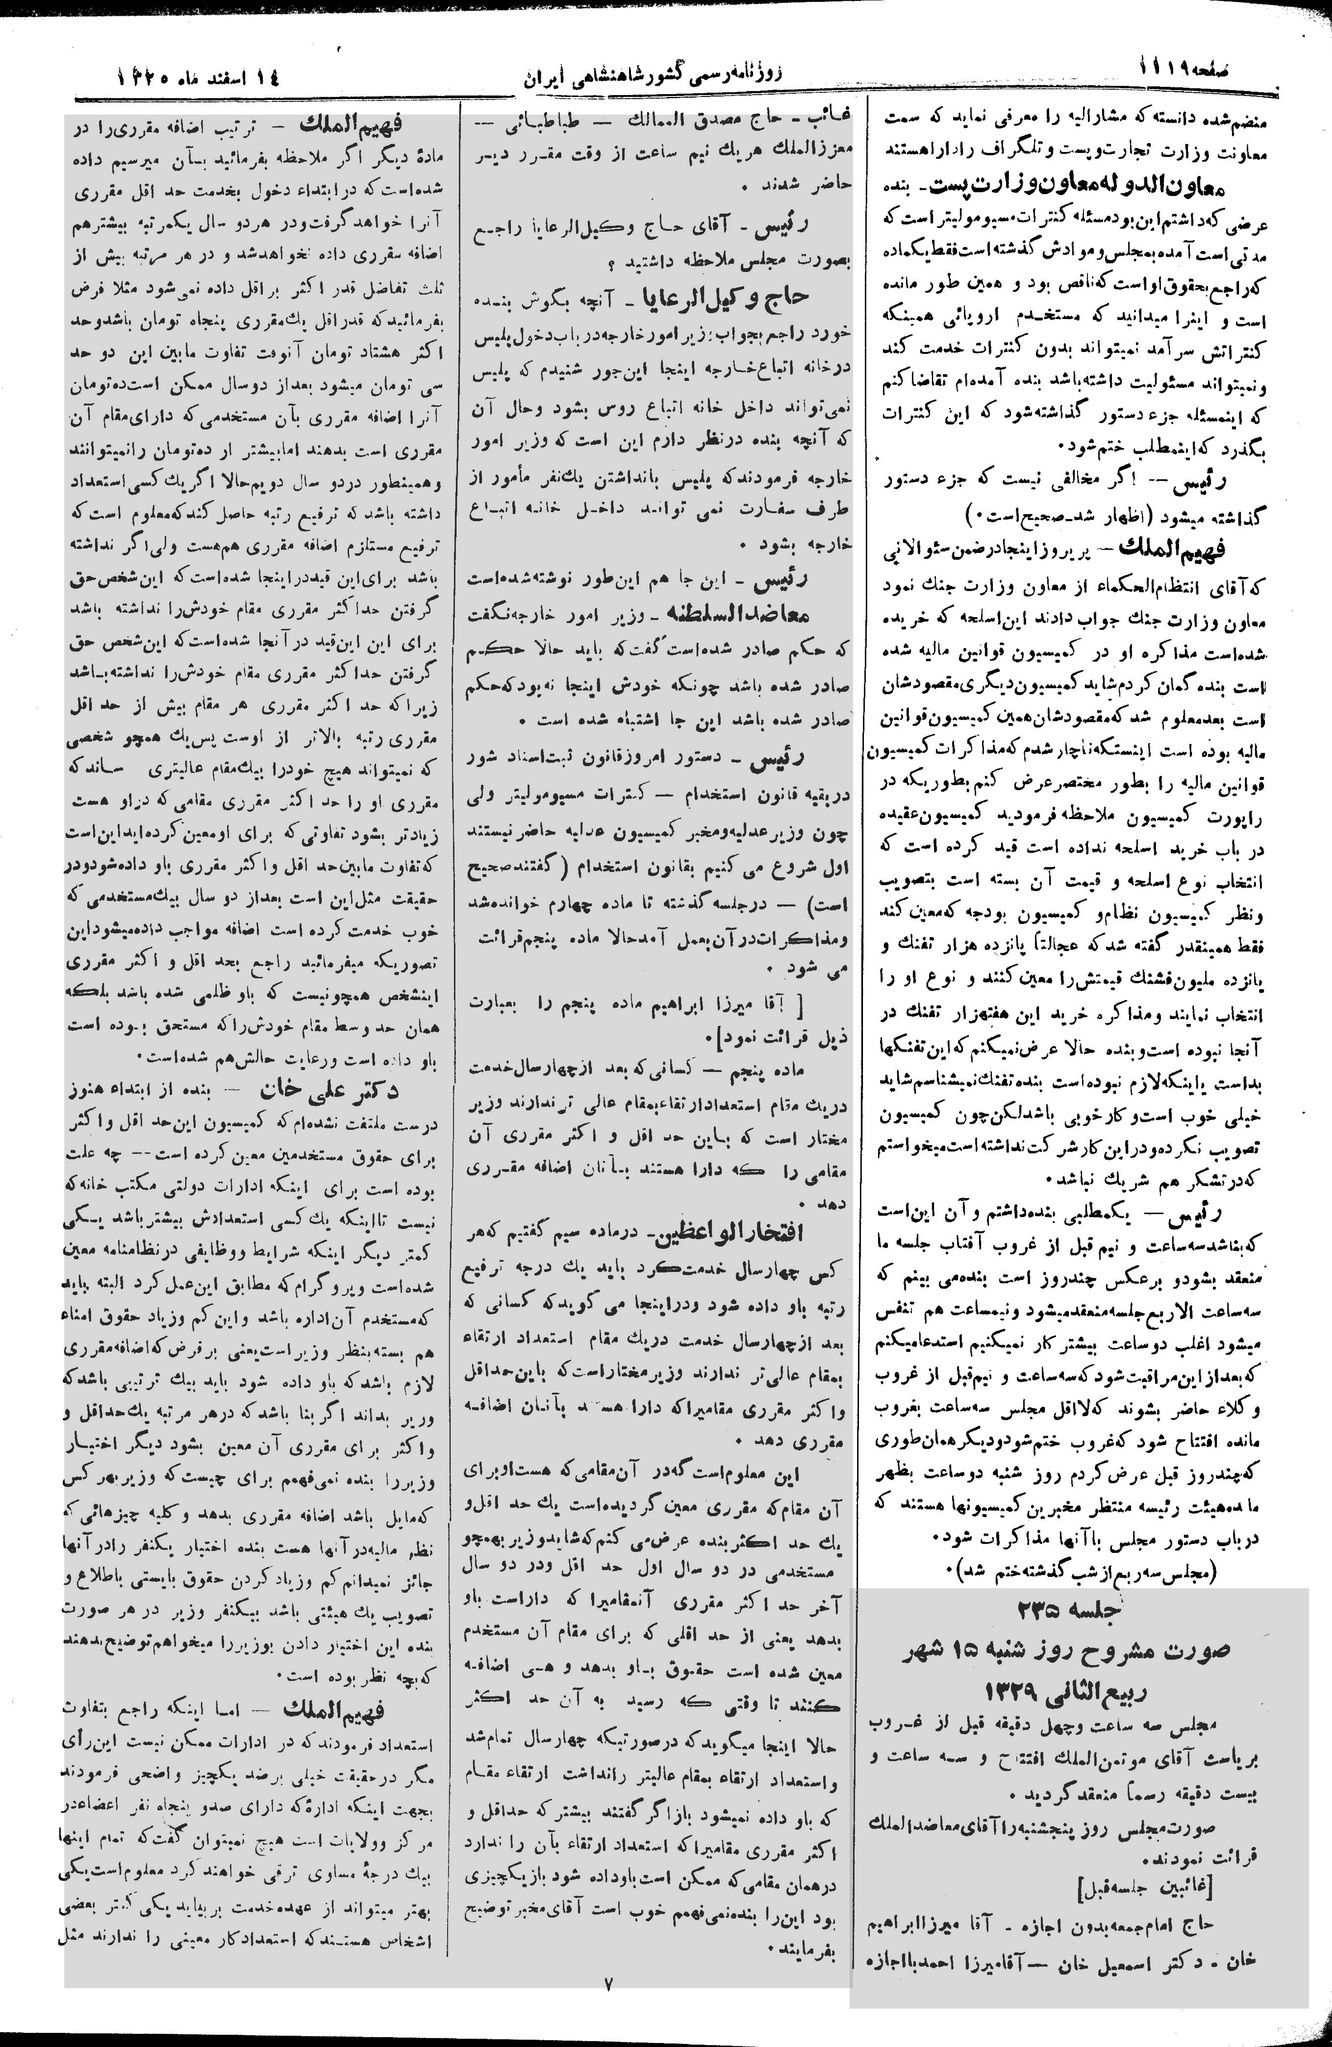 صفحه ۱۱۱۹
روزنامه رسمی کشور شاهنشاهی ایران
۱٤ اسفند ماه ۱۳۲۵
منضم شده دانسته که مشارالیه را معرفی نماید که سمت
معاونت وزارت تجارت و پست و تلگراف را دارا هستند
معاون الدوله معاون وزارت پست ـ بنده
عرضی که داشتم این بود مسئله کنترات مسیو مولیتر است که
مدتی است آمده بمجلس و موادش گذشته است فقط یکماده
که راجع بحقوق او است که ناقص بود و همین طور مانده
است و اینرا میدانید که مستخدم اروپائی همینکه
کنتراتش سر آمد نمیتواند بدون کنترات خدمت کند
و نمیتواند مسئولیت داشته باشد بنده آمده‌ام تقاضا کنم
که اینمسئله جزء دستور گذاشته شود که این کنترات
بگذرد که اینمطلب ختم شود.
رئیس — اگر مخالفی نیست که جزء دستور
گذاشته میشود (اظهار شد ـ صحیح است .)
فهیم الملك — پریروز اینجا در ضمن سئوالاتی
که آقای انتظام الحکماء از معاون وزارت جنك نمود
معاون وزارت جنك جواب دادند این اسلحه که خریده
شده است مذاکره او در کمیسیون قوانین مالیه شده
است بنده گمان کردم شاید کمیسیون دیگری مقصودشان
است بعد معلوم شد که مقصودشان همین کمیسیون قوانین
مالیه بوده است اینستکه ناچار شدم که مذاکرات کمیسیون
قوانین مالیه را بطور مختصر عرض کنم بطوریکه در
راپورت کمیسیون ملاحظه فرمودید کمیسیون عقیده
در باب خرید اسلحه نداده است قید کرده است که
انتخاب نوع اسلحه و قیمت آن بسته است بتصویب
و نظر کمیسیون نظام و کمیسیون بودجه که معین کند
فقط همینقدر گفته شد که عجالتاً پانزده هزار تفنك و
پانزده ملیون فشنك قیمتش را معین کنند و نوع او را
انتخاب نمایند و مذاکره خرید این هفتهزار تفنك در
آنجا نبوده است و بنده حالا عرض نمیکنم که این تفنگها
بداست یا اینکه لازم نبوده است بنده تفنك نمیشناسم شاید
خیلی خوب است و کار خوبی باشد لکن چون کمیسیون
تصویب نکرده و در این کار شرکت نداشته است میخواستم
که در تشکر هم شریك نباشد.
رئیس — یکمطلبی بنده داشتم و آن این است
که بنا شد سه ساعت و نیم قبل از غروب آفتاب جلسه ما
منعقد بشود و برعکس چند روز است بنده می بینم که
سه ساعت الاربع جلسه منعقد میشود و نیمساعت هم تنفس
میشود اغلب دو ساعت بیشتر کار نمیکنیم استدعا میکنم
که بعد از این مراقبت شود که سه ساعت و نیم قبل از غروب
وکلاء حاضر بشوند که لا اقل مجلس سه ساعت بغروب
مانده افتتاح شود که غروب ختم شود و دیگر همان طوری
که چند روز قبل عرض کردم روز شنبه دو ساعت بظهر
مانده هیئت رئیسه منتظر مخبرین کمیسیونها هستند که
در باب دستور مجلس با آنها مذاکرات شود.
(مجلس سه ربع از شب گذشته ختم شد).
جلسه ۲۳۵
صورت مشروح روز شنبه ۱۵ شهر
ربیع الثانی ۱۳۲۹
مجلس سه ساعت و چهل دقیقه قبل از غروب
بریاست آقای موتمن الملك افتتاح و سه ساعت و
بیست دقیقه رسماً منعقد گردید .
صورت مجلس روز پنجشنبه را آقای معاضد الملك
قرائت نمودند.
[غائبین جلسه قبل]
حاج امام جمعه بدون اجازه ـ آقا میرزا ابراهیم
خان . دکتر اسمعیل خان — آقا میرزا احمد با اجازه
غائب ـ حاج مصدق الممالك — طباطبائی —
معزز الملك هر یك نیم ساعت از وقت مقرر دیر
حاضر شدند .
رئیس ـ آقای حاج وکیل الرعایا راجع
بصورت مجلس ملاحظه داشتید ؟
حاج وکیل الرعایا ـ آنچه بگوش بنده
خورد راجع بجواب وزیر امور خارجه در باب دخول پلیس
در خانه اتباع خارجه اینجا این جور شنیدم که پلیس
نمی تواند داخل خانه اتباع روس بشود و حال آن
که آنچه بنده در نظر دارم این است که وزیر امور
خارجه فرمودند که پلیس بانداشتن یك نفر مأمور از
طرف سفارت نمی تواند داخل خانه اتباع
خارجه بشود .
رئیس ـ این جا هم این طور نوشته شده است
معاضد السلطنه ـ وزیر امور خارجه نگفت
که حکم صادر شده است گفت که باید حالا حکم
صادر شده باشد چونکه خودش اینجا نه بود که حکم
صادر شده باشد این جا اشتباه شده است .
رئیس ـ دستور امروز قانون ثبت اسناد شور
در بقیه قانون استخدام — کنترات مسیو مولیتر ولی
چون وزیر عدلیه و مخبر کمیسیون عدلیه حاضر نیستند
اول شروع می کنیم بقانون استخدام (گفتند صحیح
است) — در جلسه گذشته تا ماده چهارم خوانده شد
و مذاکرات در آن بعمل آمد حالا ماده پنجم قرائت
می شود .
[ آقا میرزا ابراهیم ماده پنجم را بعبارت
ذیل قرائت نمود].
ماده پنجم — کسانی که بعد از چهار سال خدمت
در یك مقام استعداد ارتقاء بمقام عالی تر ندارند وزیر
مختار است که باین حد اقل و اکثر مقرری آن
مقامی را که دارا هستند بآنان اضافه مقرری
دهد .
افتخار الواعظین ـ در ماده سیم گفتیم که هر
کس چهار سال خدمت کرد باید یك درجه ترفیع
رتبه باو داده شود و در اینجا می گوید که کسانی که
بعد از چهار سال خدمت در یك مقام استعداد ارتقاء
بمقام عالی تر ندارند وزیر مختار است که باین حداقل
و اکثر مقرری مقامیرا که دارا هستند بآنان اضافه
مقرری دهد .
این معلوم است که در آن مقامی که هست او برای
آن مقام که مقرری معین گردیده است یك حد اقل و
یك حد اکثر بنده عرض می کنم که شاید وزیر بهمچو
مستخدمی در دو سال اول حد اقل و در دو سال
آخر حد اکثر مقرری آنمقامیرا که دار است باو
بدهد یعنی از حد اقلی که برای مقام آن مستخدم
معین شده است حقوق باو بدهد و هی اضافه
کنند تا وقتی که رسید به آن حد اکثر
حالا اینجا میگوید که در صورتیکه چهار سال تمام شد
و استعداد ارتقاء بمقام عالیتر را نداشت ارتقاء مقام
که باو داده نمیشود باز اگر گفتند بیشتر که حداقل و
اکثر مقرری مقامیرا که استعداد ارتقاء بآن را ندارد
در همان مقامی که ممکن است باو داده شود باز یکچیزی
بود این را بنده نمی فهمم خوب است آقای مخبر توضیح
بفرمایند.
فهیم الملك — ترتیب اضافه مقرری را در
مادۀ دیگر اگر ملاحظه بفرمائید بآن میرسیم داده
شده است که در ابتداء دخول بخدمت حد اقل مقرری
آنرا خواهد گرفت و در هر دو سال یکمرتبه بیشتر هم
اضافه مقرری داده نخواهد شد و در هر مرتبه بیش از
ثلث تفاضل قدر اکثر بر اقل داده نمی شود مثلا فرض
بفرمائید که قدر اقل یك مقرری پنجاه تومان باشد و حد
اکثر هشتاد تومان آنوقت تفاوت مابین این دو حد
سی تومان میشود بعد از دو سال ممکن است ده تومان
آنرا اضافه مقرری بآن مستخدمی که دارای مقام آن
مقرری است بدهند اما بیشتر از ده تومان را نمیتوانند
و همینطور در دو سال دویم حالا اگر یك کسی استعداد
داشته باشد که ترفیع رتبه حاصل کند که معلوم است که
ترفیع مستلزم اضافه مقرری هم هست ولی اگر نداشته
باشد برای این قید در اینجا شده است که این شخص حق
گرفتن حد اکثر مقرری مقام خودش را نداشته باشد
برای این این قید در آنجا شده است که این شخص حق
گرفتن حد اکثر مقرری مقام خودش را نداشته باشد
زیرا که حد اکثر مقرری هر مقام بیش از حد اقل
مقرری رتبه بالاتر از اوست پس یك همچو شخصی
که نمیتواند هیچ خود را بیك مقام عالیتری ساند که
مقرری او را حد اکثر مقرری مقامی که در او هست
زیادتر بشود تفاوتی که برای او معین کرده اید این است
که تفاوت مابین حد اقل و اکثر مقرری باو داده شود و در
حقیقت مثل این است بعد از دو سال بیك مستخدمی که
خوب خدمت کرده است اضافه مواجب داده میشود این
تصوریکه میفرمائید راجع بحد اقل و اکثر مقرری
اینشخص همچو نیست که باو ظلمی شده باشد بلکه
همان حد وسط مقام خودش را که مستحق بوده است
باو داده است و رعایت حالش هم شده است.
دکتر علی خان — بنده از ابتداء هنوز
درست ملتفت نشده‌ام که کمیسیون این حد اقل و اکثر
برای حقوق مستخدمین معین کرده است — چه علت
بوده است برای اینکه ادارات دولتی مکتب خانه که
نیست تا اینکه یك کسی استعدادش بیشتر باشد یکی
کمتر دیگر اینکه شرایط و وظایفی در نظامنامه معین
شده است و پروگرام که مطابق این عمل کرد البته باید
که مستخدم آن اداره باشد و این کم و زیاد حقوق امناء
هم بسته بنظر وزیر است یعنی بر فرض که اضافه مقرری
لازم باشد که باو داده شود باید بیك ترتیبی باشد که
وزیر بداند اگر بنا باشد که در هر مرتبه یك حد اقل و
و اکثر برای مقرری آن معین بشود دیگر اختیار
وزیر را بنده نمی فهمم برای چیست که وزیر بهر کس
که مایل باشد اضافه مقرری بدهد و کلیه چیزهائی که
نظر مالیه در آنها هست بنده اختیار یکنفر را در آنها
جائز نمیدانم کم و زیاد کردن حقوق بایستی باطلاع و
تصویب یك هیئتی باشد بیکنفر وزیر در هر صورت
بنده این اختیار دادن بوزیر را میخواهم توضیح بدهند
که بچه نظر بوده است.
فهیم الملك — اما اینکه راجع بتفاوت
استعداد فرمودند که در ادارات ممکن نیست این رأی
مگر در حقیقت خیلی بر ضد یکچیز واضحی فرمودند
بجهت اینکه ادارۀ که دارای صد و پنجاه نفر اعضاء در
مرکز و ولایات است هیچ نمیتوان گفت که تمام اینها
بیك درجۀ مساوی ترقی خواهند کرد معلوم است یکی
بهتر میتواند از عهده خدمت بر بیاید یکی کمتر بعضی
اشخاص هستند که استعداد کار معینی را ندارند مثل
۷